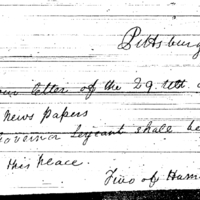 Pittsburg
letter of the 29. Ult.
News Papers
Governor Sergeant shall be
this place.
Two of Ham